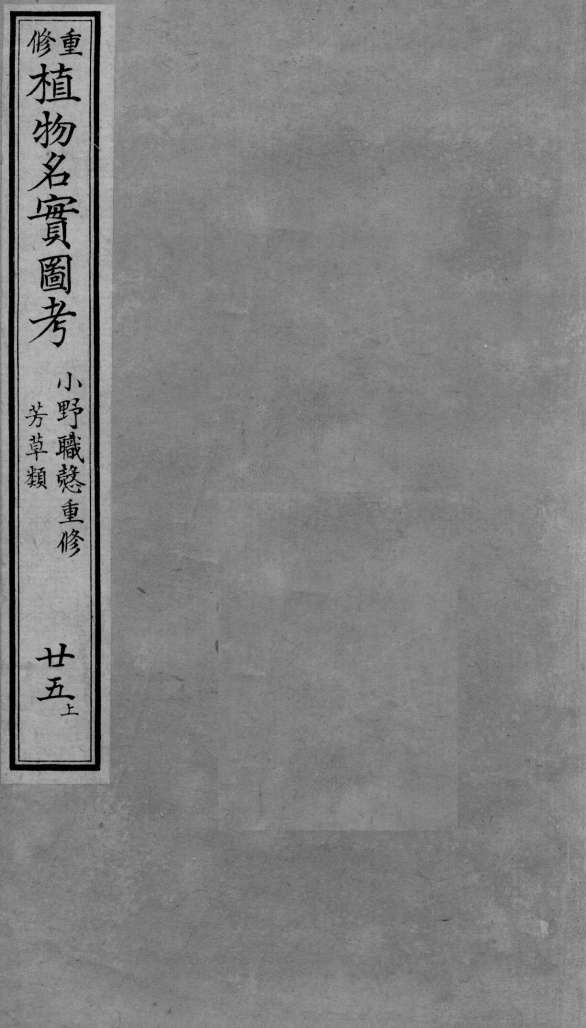 重修
植物名實圖考
小野職愨重修
芳草類
廿五上